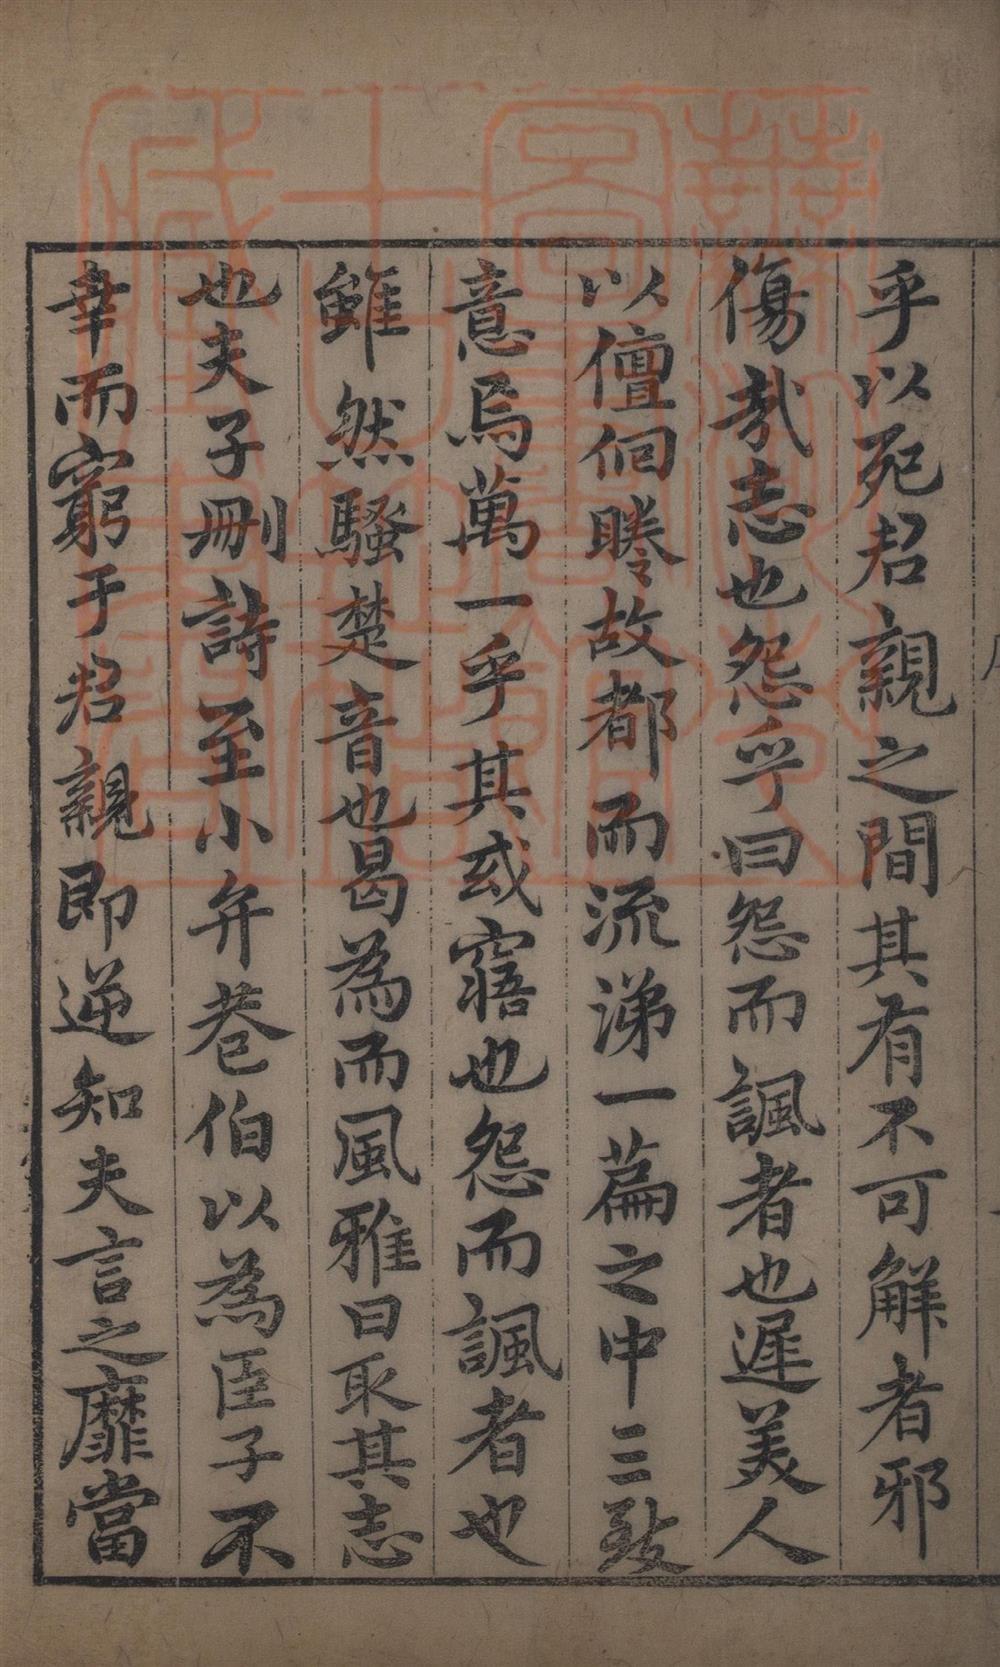 乎以死君親之間其有不可解者邪
傷哉志也怨乎曰怨而諷者也遲美人
以儃佪睠故都而流涕一篇之中三致
意焉萬一乎其或寤也怨而諷者也
雖然騷楚音也曷為而風雅曰取其志
也夫子刪詩至小弁巷伯以為臣子不
幸而窮于君親即逆知夫言之靡當